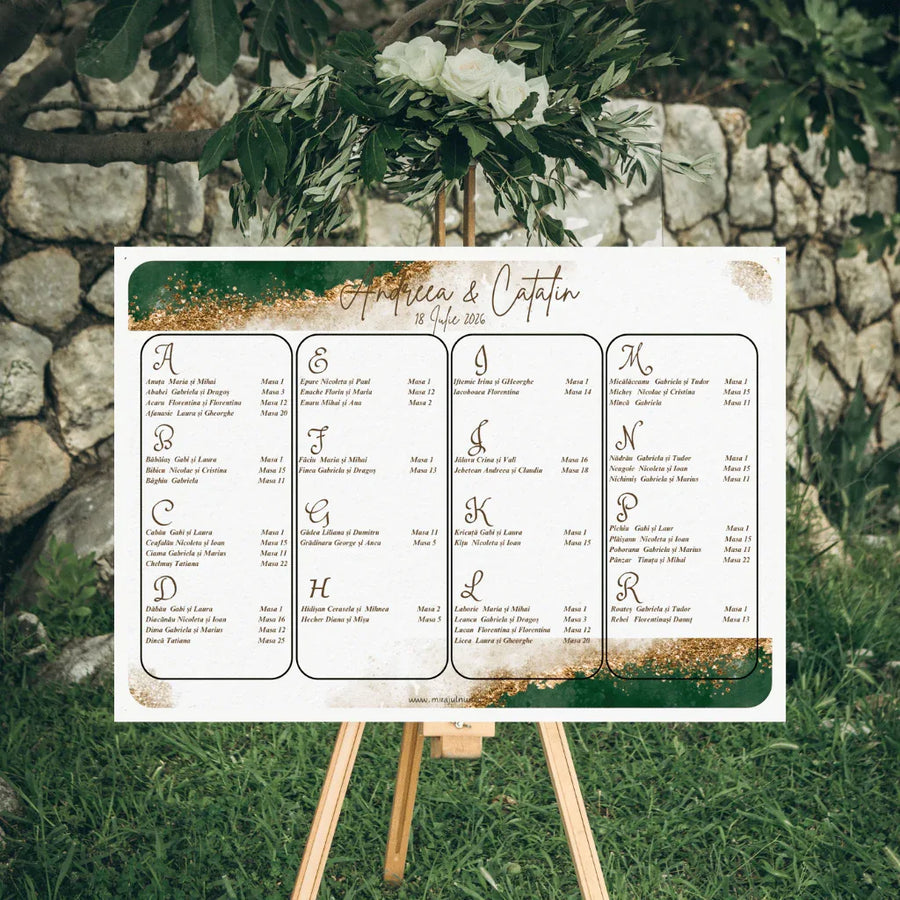 Andreea & Catalin
18 Iulie 2026
A
Anuța Maria și Mihai Masa 1
Ababei Gabriela și Dragoș Masa 3
Acaru Florentina și Florentina Masa 12
Afanasie Laura și Gheorghe Masa 20
B
Băbăiaș Gabi și Laura Masa 1
Bibicu Nicolae și Cristina Masa 15
Băghiu Gabriela Masa 11
C
Cabău Gabi și Laura Masa 1
Ceafalău Nicoleta și Ioan Masa 15
Ciama Gabriela și Marius Masa 11
Chelmuș Tatiana Masa 22
D
Dăbău Gabi și Laura Masa 1
Diacănău Nicoleta și Ioan Masa 16
Dima Gabriela și Marius Masa 12
Dincă Tatiana Masa 25
E
Epure Nicoleta și Paul Masa 1
Enache Florin și Maria Masa 12
Enaru Mihai și Ana Masa 2
F
Făciu Maria și Mihai Masa 1
Finea Gabriela și Dragoș Masa 13
G
Gâdea Liliana și Dumitru Masa 11
Grădinaru George și Anca Masa 5
H
Hidișan Cerasela și Mihnea Masa 2
Hecher Diana și Mișu Masa 5
I
Iftemie Irina și GHeorghe Masa 1
Iacoboaea Florentina Masa 14
J
Jălavu Crina și Vali Masa 16
Jebetean Andreea și Claudiu Masa 18
K
Kricuță Gabi și Laura Masa 1
Kițu Nicoleta și Ioan Masa 15
L
Laborie Maria și Mihai Masa 1
Leancu Gabriela și Dragoș Masa 3
Lucan Florentina și Florentina Masa 12
Licea Laura și Gheorghe Masa 20
M
Micălăceanu Gabriela și Tudor Masa 1
Micheș Nicolae și Cristina Masa 15
Mincă Gabriela Masa 11
N
Nădrău Gabriela și Tudor Masa 1
Neagoie Nicoleta și Ioan Masa 15
Nichiniș Gabriela și Marius Masa 11
P
Pichiu Gabi și Laur Masa 1
Plăișanu Nicoleta și Ioan Masa 15
Pohoranu Gabriela și Marius Masa 11
Pânzar Tinuța și Mihai Masa 22
R
Roateș Gabriela și Tudor Masa 1
Rebei Florentinași Danuț Masa 13